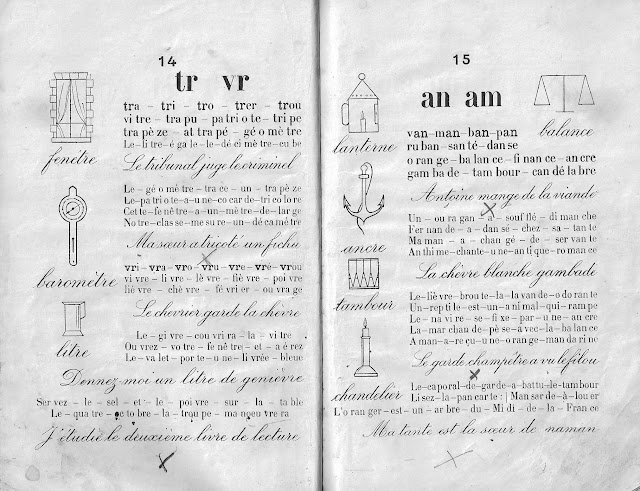 14
tr vr
tra – tri – tro – trer – trou
vi tre – tra pu – pa tri o te – tri pe
tra pè ze – at tra pé – gé o mè tre
Le – li tre – é ga le – le – dé ci mè tre – cu be
fenêtre
Le tribunal juge le criminel
Le – gé o mè tre – tra ce – un – tra pè ze
Le – pa tri o te – a – u ne – co car de – tri co lo re
Cet te – fe nê tre – a – un – mè tre – de – lar ge
No tre – clas se – me su re – un – dé ca mè tre
Ma sœur a tricoté un fichu
baromètre
vri – vra – vro – vru – vre – vré – vrou
vi vre – li vre – lè vre – liè vre – poi vre
liè vre – chè vre – fé vri er – ou vra ge
Le chevrier garde la chèvre
litre
Le – gi vre – cou vri ra – la – vi tre
Ou vrez – vo tre – fe nê tre – et – a é rez
Le – va let – por te – u ne – li vrée – bleue
Donnez-moi un litre de genièvre
Ser vez – le – sel – et – le – poi vre – sur – la – ta ble
Le – qua tre – oc to bre – la – trou pe – ma nœu vre ra
J'étudie le deuxième livre de lecture
15
an am
lanterne
balance
van – man – ban – pan
ru ban – san té – dan se
o ran ge – ba lan ce – fi nan ce – an cre
gam ba de – tam bour – can dé la bre
Antoine mange de la viande
Un – ou ra gan – a – souf flé – di man che
Fer nan de – a – dan sé – chez – sa – tan te
Ma man – a – chan gé – de – ser van te
An thi me – chante – u ne – an ti que – ro man ce
ancre
La chèvre blanche gambade
Le – liè vre – brou te – la – la van de – o do ran te
Un – rep ti le – est – un – a ni mal – qui – ram pe
Le – na vi re – se – fi xe – par – u ne – an cre
La – mar chan de – pè se – à vec – la – ba lan ce
A man – a – re çu – u ne – o ran ge – man da ri ne
tambour
Le garde champêtre a vu le filou
chandelier
Le – caporal – de – gar de – a – battu – le – tambour
Li sez – la – pan car te : | Man sar de – à – lou er
L'o ran ger – est – un – ar bre – du – Mi di – de – la – Fran ce
Ma tante est la sœur de maman